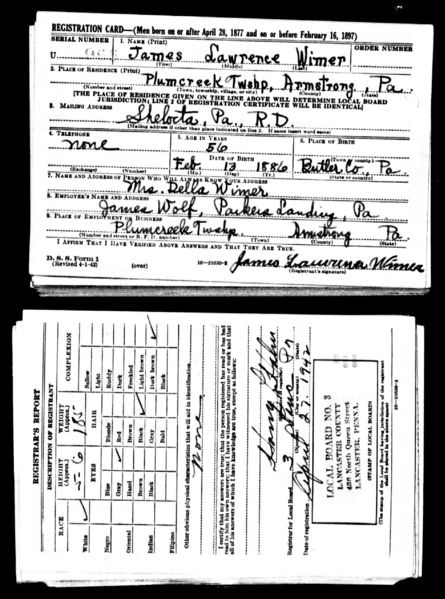 REGISTRATION CARD—(Men born on or after April 28, 1877 and on or before February 16, 1897)
SERIAL NUMBER 1. NAME (Print)
U James Lawrence Wimer
(First) (Middle) (Last)
2. PLACE OF RESIDENCE (Print)
Plumcreek Twshp, Armstrong, Pa
(Number and street) (Town, township, village, or city) (County) (State)
[THE PLACE OF RESIDENCE GIVEN ON THE LINE ABOVE WILL DETERMINE LOCAL BOARD
JURISDICTION; LINE 2 OF REGISTRATION CERTIFICATE WILL BE IDENTICAL]
3. MAILING ADDRESS
Shelocta, Pa., R.D.
[Mailing address if other than place indicated on line 2. If same insert word same]
4. TELEPHONE 5. AGE IN YEARS 6. PLACE OF BIRTH
none 56
DATE OF BIRTH
Feb. 13 1886 Butler Co., Pa
(Exchange) (Number) (Mo.) (Day) (Yr.) (State or country)
7. NAME AND ADDRESS OF PERSON WHO WILL ALWAYS KNOW YOUR ADDRESS
Mrs. Della Wimer
8. EMPLOYER'S NAME AND ADDRESS
James Wolf Parkers Landing, Pa
9. PLACE OF EMPLOYMENT OR BUSINESS
Plumcreek Twshp. Armstrong Pa
(Number and street or R. F. D. number) (Town) (County) (State)
I AFFIRM THAT I HAVE VERIFIED ABOVE ANSWERS AND THAT THEY ARE TRUE.
D. S. S. Form 1
(Revised 4-1-42) (over) 16—21630-2 James Lawrence Wimer
(Registrant's signature)
REGISTRAR'S REPORT
DESCRIPTION OF REGISTRANT
RACE HEIGHT (Approx.) WEIGHT (Approx.) COMPLEXION
5-6 185
EYES HAIR
White Blue Blonde Sallow
Light
Negro Gray Red Ruddy
Dark
Oriental Hazel Brown Freckled
Light brown
Indian Brown Black Dark brown
Black
Filipino Black Gray
Bald
Other obvious physical characteristics that will aid in identification
None
I certify that my answers are true; that the person registered has read or has had
read to him his own answers; that I have witnessed his signature or mark and that
all of his answers of which I have knowledge are true, except as follows:
Registrar for Local Board 3
Date of registration 1942
LOCAL BOARD NO. 3
LANCASTER COUNTY
North Queen Street,
LANCASTER, PENNA.
STAMP OF LOCAL BOARD
(The stamp of the Local Board having jurisdiction of the registrant
shall be placed in the above space)
16—21630-2